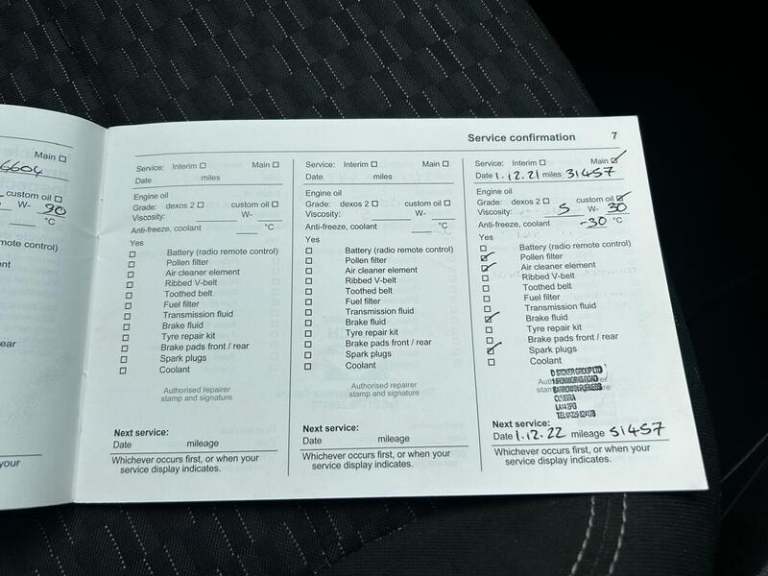 Service confirmation 7
Main
6604
custom oil
W- 30
°C
mote control)
ent
ear
your
Service: Interim Main
Date miles
Engine oil
Grade: dexos 2 custom oil
Viscosity: W-
Anti-freeze, coolant °C
Yes
Battery (radio remote control)
Pollen filter
Air cleaner element
Ribbed V-belt
Toothed belt
Fuel filter
Transmission fluid
Brake fluid
Tyre repair kit
Brake pads front / rear
Spark plugs
Coolant
Authorised repairer
stamp and signature
Next service:
Date mileage
Whichever occurs first, or when your
service display indicates.
Service: Interim Main
Date miles
Engine oil
Grade: dexos 2 custom oil
Viscosity: W-
Anti-freeze, coolant °C
Yes
Battery (radio remote control)
Pollen filter
Air cleaner element
Ribbed V-belt
Toothed belt
Fuel filter
Transmission fluid
Brake fluid
Tyre repair kit
Brake pads front / rear
Spark plugs
Coolant
Authorised repairer
stamp and signature
Next service:
Date mileage
Whichever occurs first, or when your
service display indicates.
Service: Interim Main
Date 1.12.21 miles 31457
Engine oil
Grade: dexos 2 custom oil
Viscosity: 5 W- 30
Anti-freeze, coolant -30 °C
Yes
Battery (radio remote control)
Pollen filter
Air cleaner element
Ribbed V-belt
Toothed belt
Fuel filter
Transmission fluid
Brake fluid
Tyre repair kit
Brake pads front / rear
Spark plugs
Coolant
Next service:
Date 1.12.22 mileage 51457
Whichever occurs first, or when your
service display indicates.